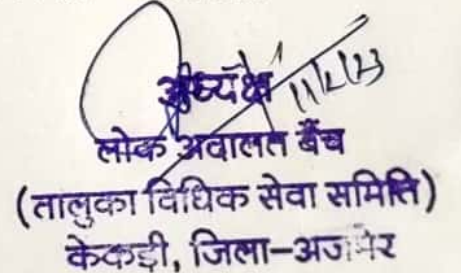 अध्यक्ष 11/2/23
लोक अदालत बैंच
(तालुका विधिक सेवा समिति)
केकड़ी, जिला-अजमेर